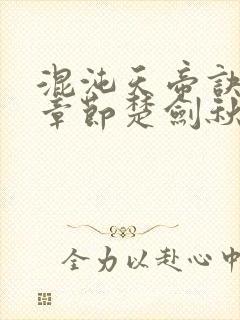 混沌天帝訣
章節楚劍秋
全力以赴心中